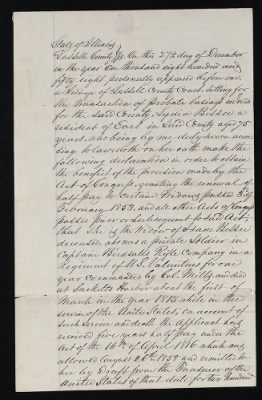 State of Illinois
LaSalle County SS. On the 27th day of December
in the year One thousand eight hundred and
fifty eight personally appeared before me
a Judge of LaSalle County Court, sitting for
the transaction of Probate business in and
for the said County, Lydia
resident of Earl in Said County aged 75
years, who being by me duly sworn accor-
ding to law doth on her oath make the
following declaration in order to obtain
the benefit of the provision made by the
Act of Congress, granting the renewal of
half pay to certain Widows passed 3d
February 1853 and other Acts of Congress
passed prior or subsequent to Said Act,
that She is the Widow of Isaac
deceased who was a private Soldier in
Captain Birdsalls Rifle Company in a
Regiment of U.S. Volunteers for one
year commanded by Col. Mills, and died
at Sacketts Harbor about the first of
March in the year 1813 while in the
service of the United States, on account of
such service and death the Applicant has
received five years half pay under the
Act of the 16th of April 1816 which was
allowed August 26th 1858 and remitted to
her by Draft from the Treasurer of the
United States of that date for two hundred